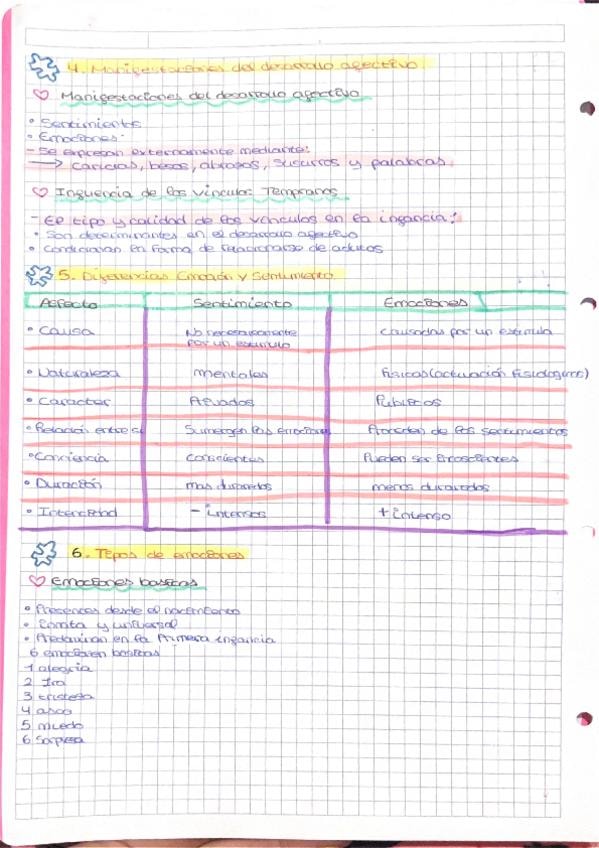 4. Manifestaciones del desarrollo afectivo
Manifestaciones del desarrollo afectivo
• Sentimientos
• Emociones:
- Se expresan externamente mediante:
→ caricias, besos, abrazos, susurros y palabras.
Influencia de los vinculos Tempranos
- El tipo y calidad de los vinculos en la infancia:
• Son determinantes en el desarrollo afectivo
• Condicionan en forma de relacionarse de adultos
5. Diferencias Emoción y Sentimiento
Aspecto Sentimiento Emociones
• Causa No necesariamente por un estimulo causadas por un estimulo
• Naturaleza mentales fisicas (actuación fisiologica)
• Caracter Privados Publicos
• Relación entre si Sumergen las emociones Proceden de los sentimientos
• Conciencia conscientes Pueden ser incoscientes
• Duración mas duraderos menos duraderos
• Intencidad - intensos + intenso
6. Tipos de emociones
Emociones basicas
• Presences desde el nacimiento
• innata y universal
• Predominan en la Primera infancia
6 emociones basicas
1 alegria
2 Ira
3 tristeza
4 asco
5 miedo
6 Sorpresa